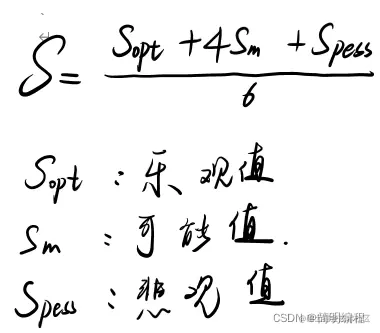 S = (Sopt + 4Sm + Spess) / 6
Sopt : 乐观值
Sm : 可能值.
Spess : 悲观值
CSDN @简明编程